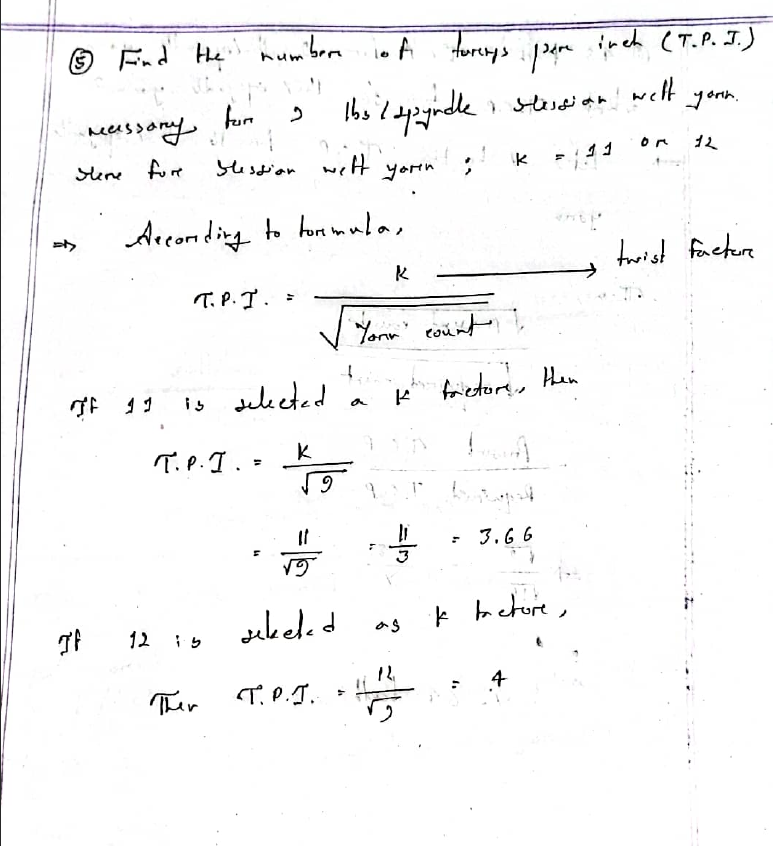 ⑤ Find the number of turns per inch (T.P.I.)
necessary for 9 lbs / spyndle, session weft yarn.
Here for session weft yarn ; K = 11 or 12
⇒ According to formula,
T.P.I. = K / √Yarn count → twist factor
If 11 is selected a K factore, then
T.P.I. = K / √9
= 11 / √9 = 11 / 3 = 3.66
If 12 is seleted as K factore,
Then T.P.I. = 12 / √9 = 4